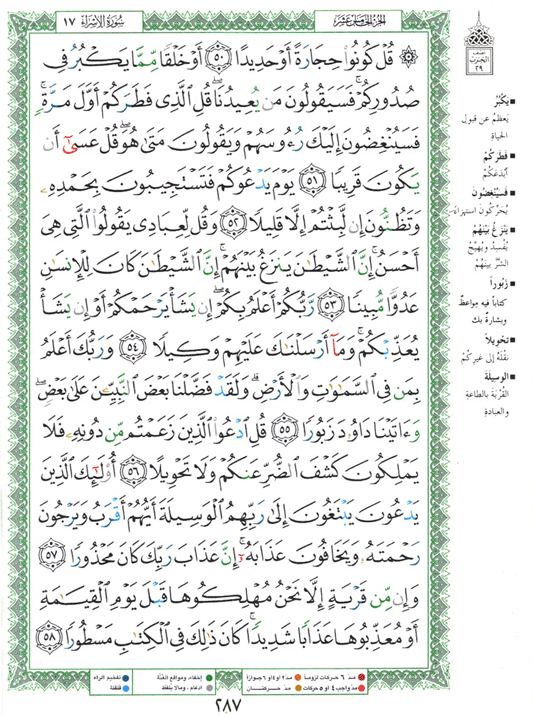 سُورَةُ الإِسْرَاءِ ١٧
الجزء الخامس عشر
۞ قُلْ كُونُوا۟ حِجَارَةً أَوْ حَدِيدًا ۝٥٠ أَوْ خَلْقًا مِّمَّا يَكْبُرُ فِى
صُدُورِكُمْ ۚ فَسَيَقُولُونَ مَن يُعِيدُنَا ۖ قُلِ ٱلَّذِى فَطَرَكُمْ أَوَّلَ مَرَّةٍ ۚ
فَسَيُنْغِضُونَ إِلَيْكَ رُءُوسَهُمْ وَيَقُولُونَ مَتَىٰ هُوَ ۖ قُلْ عَسَىٰٓ أَن
يَكُونَ قَرِيبًا ۝٥١ يَوْمَ يَدْعُوكُمْ فَتَسْتَجِيبُونَ بِحَمْدِهِۦ
وَتَظُنُّونَ إِن لَّبِثْتُمْ إِلَّا قَلِيلًا ۝٥٢ وَقُل لِّعِبَادِى يَقُولُوا۟ ٱلَّتِى هِىَ
أَحْسَنُ ۚ إِنَّ ٱلشَّيْطَٰنَ يَنزَغُ بَيْنَهُمْ ۚ إِنَّ ٱلشَّيْطَٰنَ كَانَ لِلْإِنسَٰنِ
عَدُوًّا مُّبِينًا ۝٥٣ رَّبُّكُمْ أَعْلَمُ بِكُمْ ۖ إِن يَشَأْ يَرْحَمْكُمْ أَوْ إِن يَشَأْ
يُعَذِّبْكُمْ ۚ وَمَآ أَرْسَلْنَٰكَ عَلَيْهِمْ وَكِيلًا ۝٥٤ وَرَبُّكَ أَعْلَمُ
بِمَن فِى ٱلسَّمَٰوَٰتِ وَٱلْأَرْضِ ۗ وَلَقَدْ فَضَّلْنَا بَعْضَ ٱلنَّبِيِّۦنَ عَلَىٰ بَعْضٍ ۖ
وَءَاتَيْنَا دَاوُۥدَ زَبُورًا ۝٥٥ قُلِ ٱدْعُوا۟ ٱلَّذِينَ زَعَمْتُم مِّن دُونِهِۦ فَلَا
يَمْلِكُونَ كَشْفَ ٱلضُّرِّ عَنكُمْ وَلَا تَحْوِيلًا ۝٥٦ أُو۟لَٰٓئِكَ ٱلَّذِينَ
يَدْعُونَ يَبْتَغُونَ إِلَىٰ رَبِّهِمُ ٱلْوَسِيلَةَ أَيُّهُمْ أَقْرَبُ وَيَرْجُونَ
رَحْمَتَهُۥ وَيَخَافُونَ عَذَابَهُۥٓ ۚ إِنَّ عَذَابَ رَبِّكَ كَانَ مَحْذُورًا ۝٥٧
وَإِن مِّن قَرْيَةٍ إِلَّا نَحْنُ مُهْلِكُوهَا قَبْلَ يَوْمِ ٱلْقِيَٰمَةِ
أَوْ مُعَذِّبُوهَا عَذَابًا شَدِيدًا ۚ كَانَ ذَٰلِكَ فِى ٱلْكِتَٰبِ مَسْطُورًا ۝٥٨
نصف
الحزب
٢٩
■ يَكْبُرُ
يَعظُمُ عن قبول
الحياةِ
■ فَطَرَكُمْ
أبْدَعَكُمْ
■ فَسَيُنْغِضُونَ
يُحرِّكونَ استهزاءً
■ يَنْزَغُ بَيْنَهُمْ
يُفْسِدُ ويُهَيِّجُ
الشرَّ بينَهُمْ
■ زَبُوراً
كتاباً فيه مواعظُ
وبشارةٌ بك
■ تَحْوِيلاً
نَقْلَهُ إلى غيرِكُمْ
■ الوَسِيلَةَ
القُرْبَةَ بالطاعةِ
والعبادةِ
مدّ ٦ حركات لزوماً
مدّ ٢ أو ٤ أو ٦ جوازاً
إخفاء، ومواقع الغُنَّة
تفخيم الراء
مدّ واجب ٤ أو ٥ حركات
مدّ حركتان
ادغام، ومالا يُلفَظ
قلقلة
٢٨٧